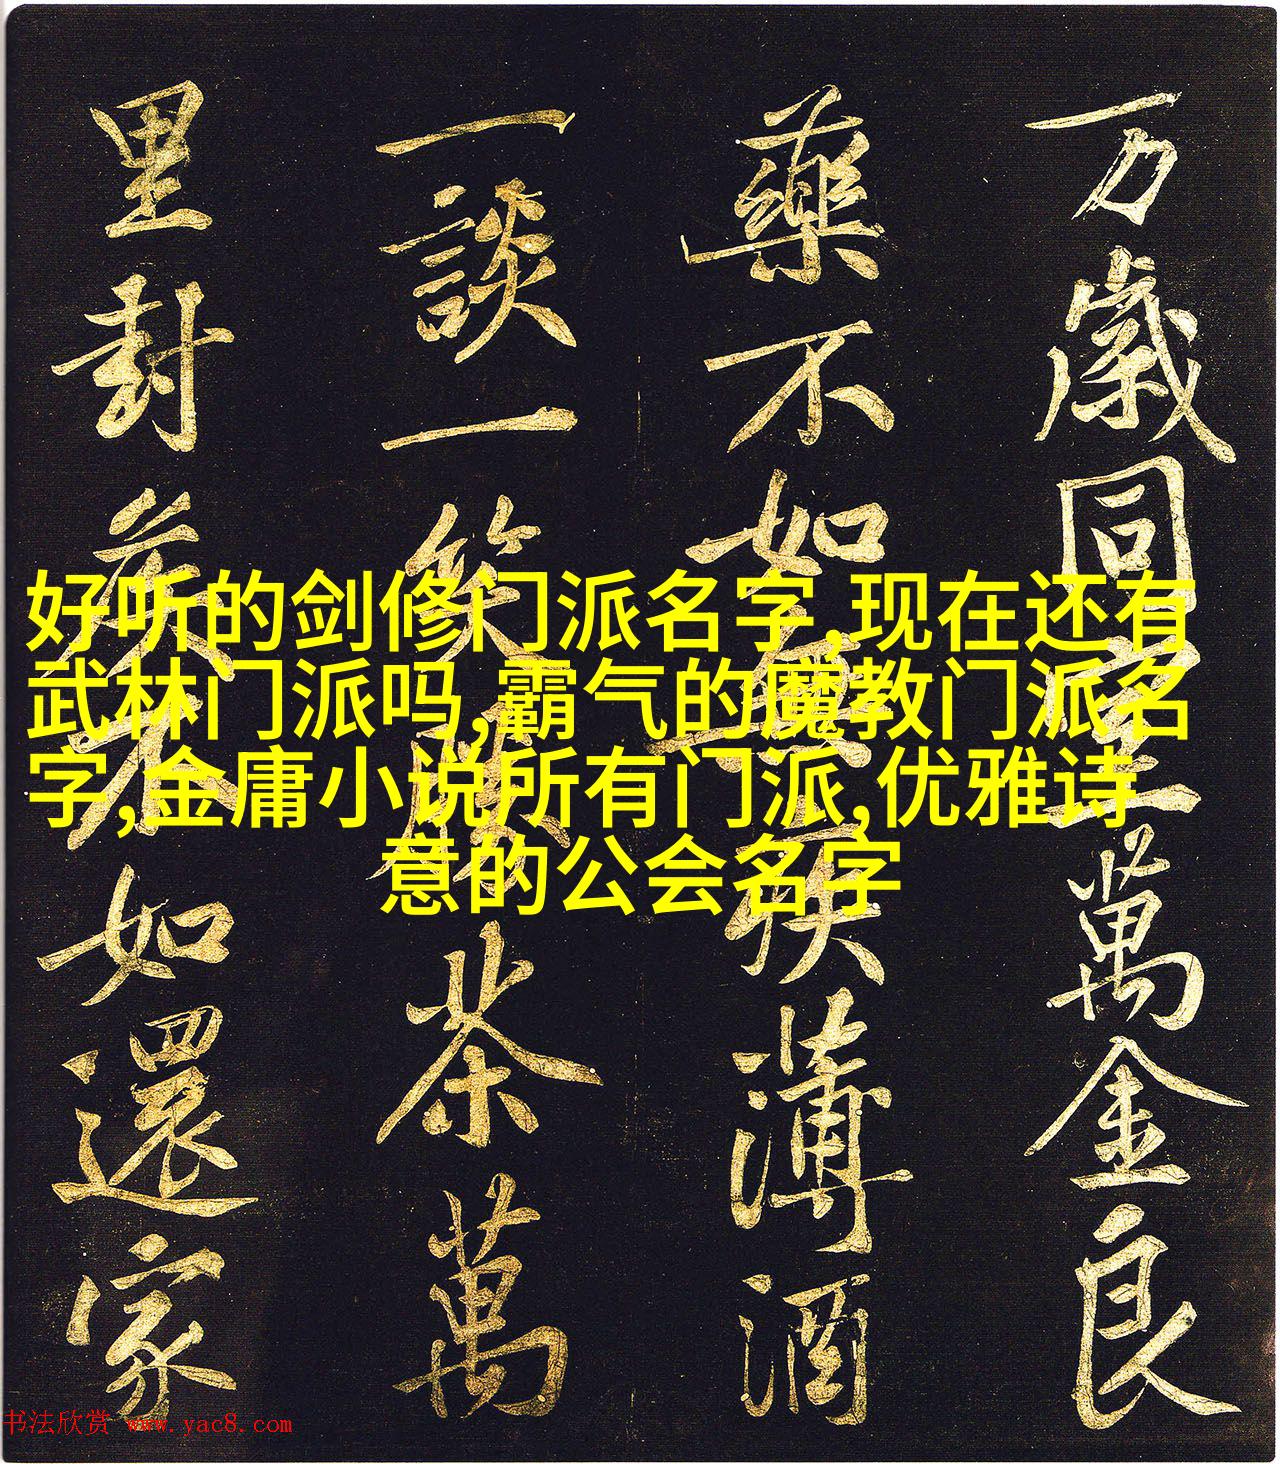 万歲同萬金良
藥不如無疾薄酒
一談一笑勝茶萬
里封侯不如還家
好听的剑修门派名字,现在还有
武林门派吗,霸气的魔教门派名
字,金庸小说所有门派,优雅诗
意的公会名字
书法欣赏 www.yac8.com